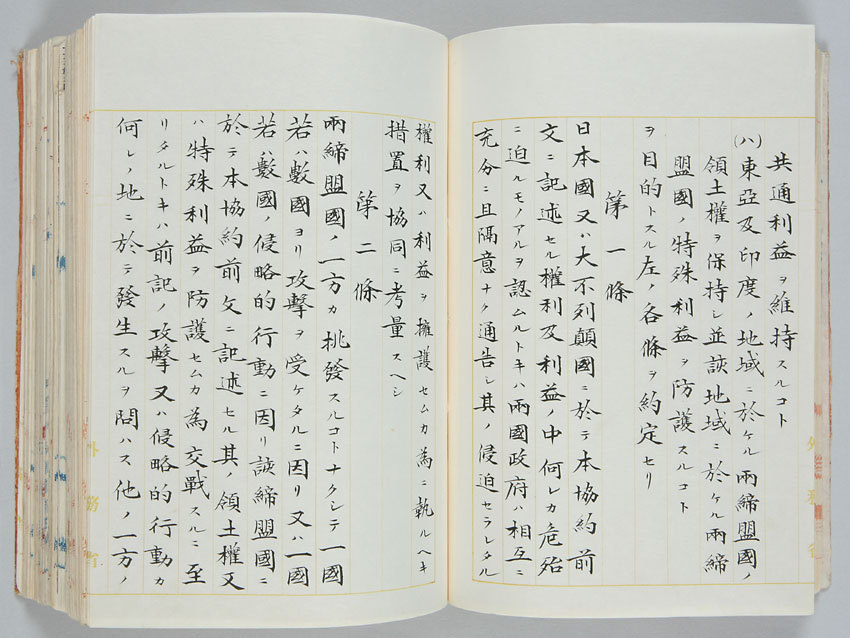 共通利益ヲ維持スルコト
(ハ)東亞及印度ノ地域ニ於ケル兩締盟國ノ
領土權ヲ保持シ並該地域ニ於ケル兩締
盟國ノ特殊利益ヲ防護スルコト
ヲ目的トスル左ノ各條ヲ約定セリ
第一條
日本國又ハ大不列顛國ニ於テ本協約前
文ニ記述セル權利及利益ノ中何レカ危殆
ニ迫ルモノアルヲ認ムルトキハ兩國政府ハ相互ニ
充分ニ且隔意ナク通告シ其ノ侵迫セラレタル
權利又ハ利益ヲ擁護セムカ為ニ執ルヘキ
措置ヲ協同ニ考量スヘシ
第二條
兩締盟國ノ一方カ挑發スルコトナクシテ一國
若ハ數國ヨリ攻擊ヲ受ケタルニ因リ又ハ一國
若ハ數國ノ侵略的行動ニ因リ該締盟國ニ
於テ本協約前文ニ記述セル其ノ領土權又
ハ特殊利益ヲ防護セムカ為交戰スルニ至
リタルトキハ前記ノ攻擊又ハ侵略的行動カ
何レノ地ニ於テ發生スルヲ問ハス他ノ一方ノ
外務省